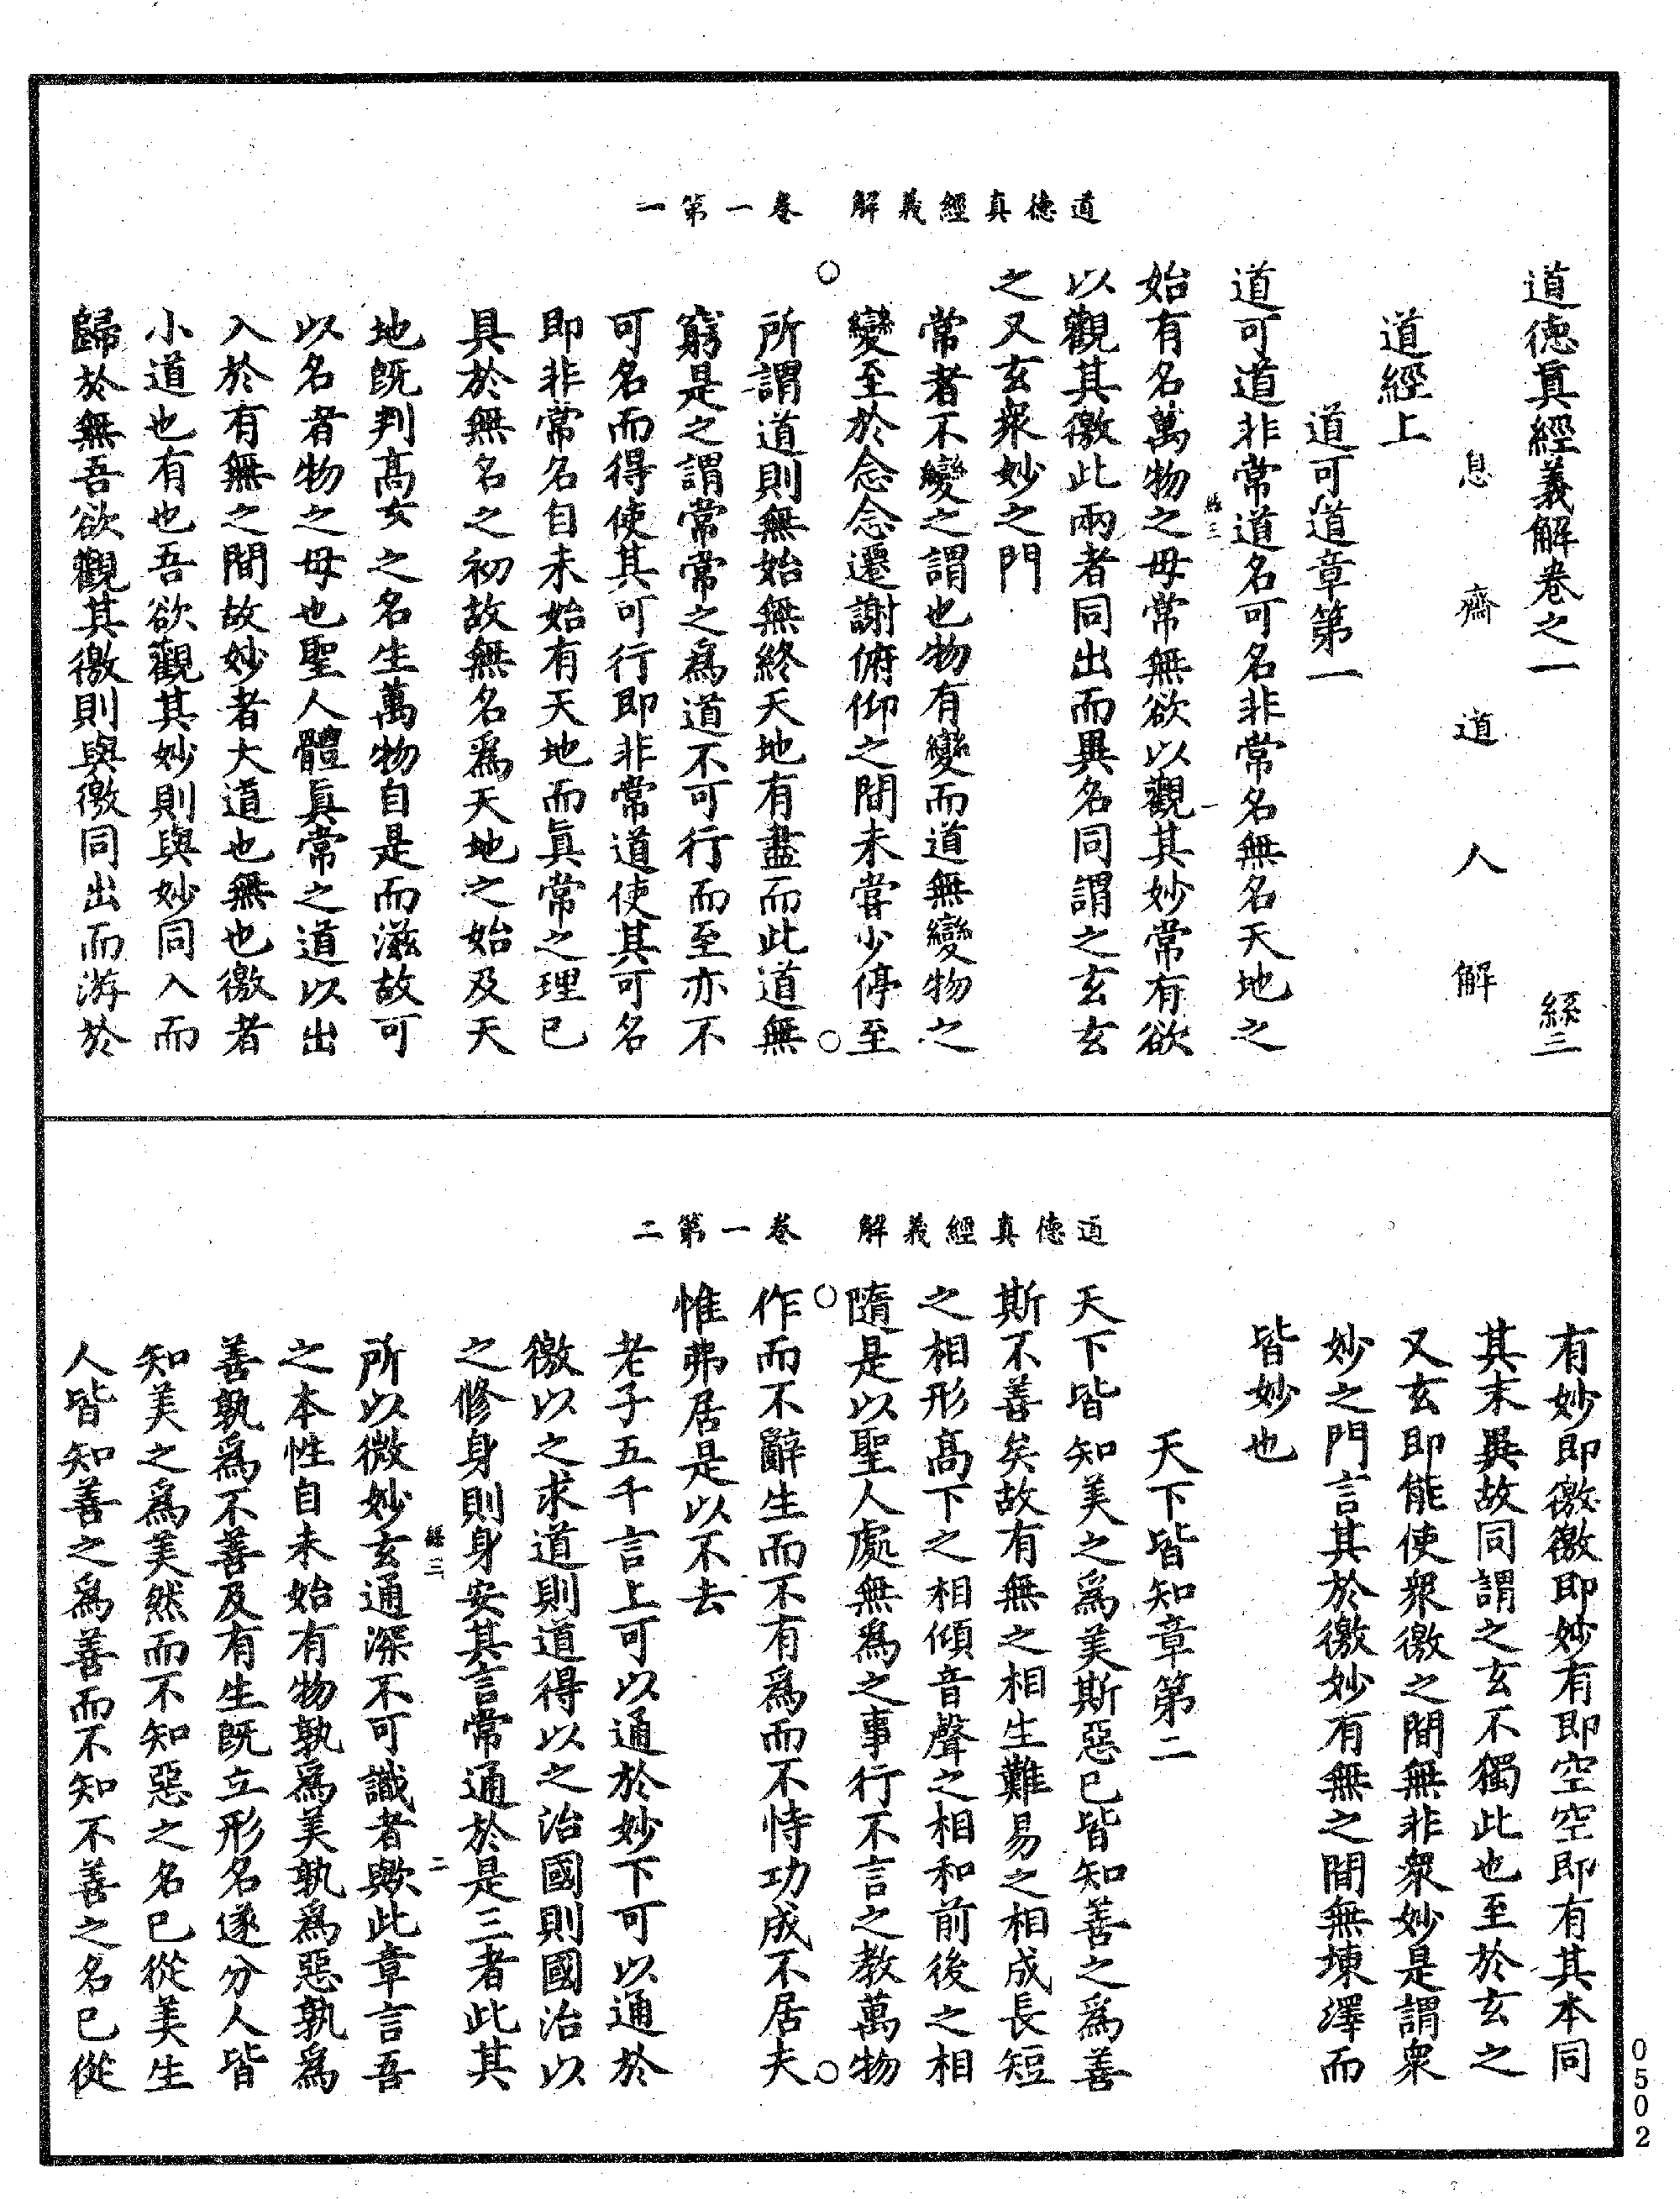 道德真經義解　卷一第一
道德眞經義解卷之一　絲三
息齋道人解
道經上
道可道章第一
道可道非常道名可名非常名無名天地之
絲三　一
始有名萬物之母常無欲以觀其妙常有欲
以觀其徼此兩者同出而異名同謂之玄玄
之又玄衆妙之門
常者不變之謂也物有變而道無變物之
變至於念念遷謝俯仰之間未嘗少停至
所謂道則無始無終天地有盡而此道無
窮是之謂常常之爲道不可行而至亦不
可名而得使其可行即非常道使其可名
即非常名自未始有天地而眞常之理已
具於無名之初故無名爲天地之始及天
地旣判髙女之名生萬物自是而滋故可
以名者物之母也聖人體眞常之道以出
入於有無之間故妙者大道也無也徼者
小道也有也吾欲觀其妙則與妙同入而
歸於無吾欲觀其徼則與徼同出而游於
道德真經義解　卷一第二
有妙即徼徼即妙有即空空即有其本同
其末異故同謂之玄不獨此也至於玄之
又玄即能使衆徼之間無非衆妙是謂衆
妙之門言其於徼妙有無之間無埬澤而
皆妙也
天下皆知章第二
天下皆知美之爲美斯惡已皆知善之爲善
斯不善矣故有無之相生難易之相成長短
之相形髙下之相傾音聲之相和前後之相
隨是以聖人處無爲之事行不言之教萬物
作而不辭生而不有爲而不恃功成不居夫
惟弗居是以不去
老子五千言上可以通於妙下可以通於
徼以之求道則道得以之治國則國治以
之修身則身安其言常通於是三者此其
絲三　二
所以微妙玄通深不可識者歟此章言吾
之本性自未始有物孰爲美孰爲惡孰爲
善孰爲不善及有生旣立形名遂分人皆
知美之爲美然而不知惡之名已從美生
人皆知善之爲善而不知不善之名已從
0502